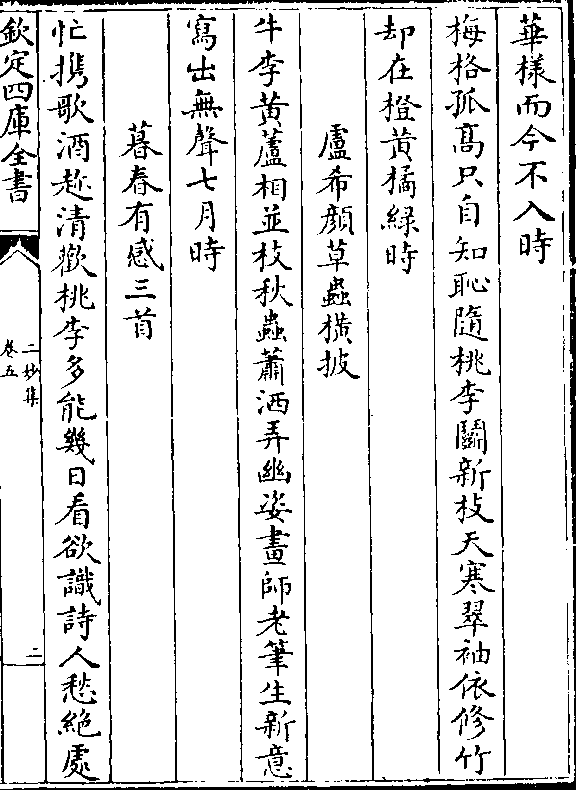 華様而今不入時
梅格孤髙只自知恥隨桃李鬬新枝天寒翠袖依修竹
却在橙黄橘緑時
盧希顔草蟲橫披
牛李黄蘆相並枝秋蟲蕭洒弄幽姿畫師老筆生新意
寫出無聲七月時
暮春有感三首
忙携歌酒趂清歡桃李多能幾日看欲識詩人愁絶處
欽定四庫全書
二妙集
卷五
二